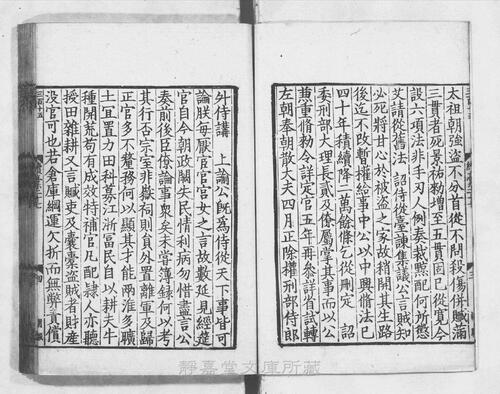 太祖朝強盗不分首從不問殺傷併贓滿
三貫者死景祐勑增至五貫固已從寬今
設六項法非手刃人例奏裁黥配何所懲
艾請從舊法 詔侍從臺諫集議公言賊知
必死將甘心於被盗之家故稍開其生路
後迄不改蹔權給事中公以中興脩法已
四十年積續降二萬餘條乞從刪定 詔
委刑部大理長貳及僚屬掌其事而以公
兼重脩勑令詳定官五年再參詳省試轉
左朝奉朝散大夫四月正除權刑部侍郎
外侍講 上諭公旣爲侍從天下事皆可
論朕每厭宦官宮女之言故數延見經筵
官自今朝政闕失民情利病勿惜盡言公
奏前後臣僚論事衆矣未嘗簿録何以考
其行否宗室非嶽祠則員外置離軍及歸
正官多不釐務何以顯其才能兩淮多曠
土宜置力田科募江浙富民自以耕夫牛
種開荒苟有成效特補官凡配隸人亦聽
授田雜耕又言贓吏及囊橐盗賊者財產
没官可也若倉庫綱運欠折而無弊責償
靜嘉堂文庫所藏